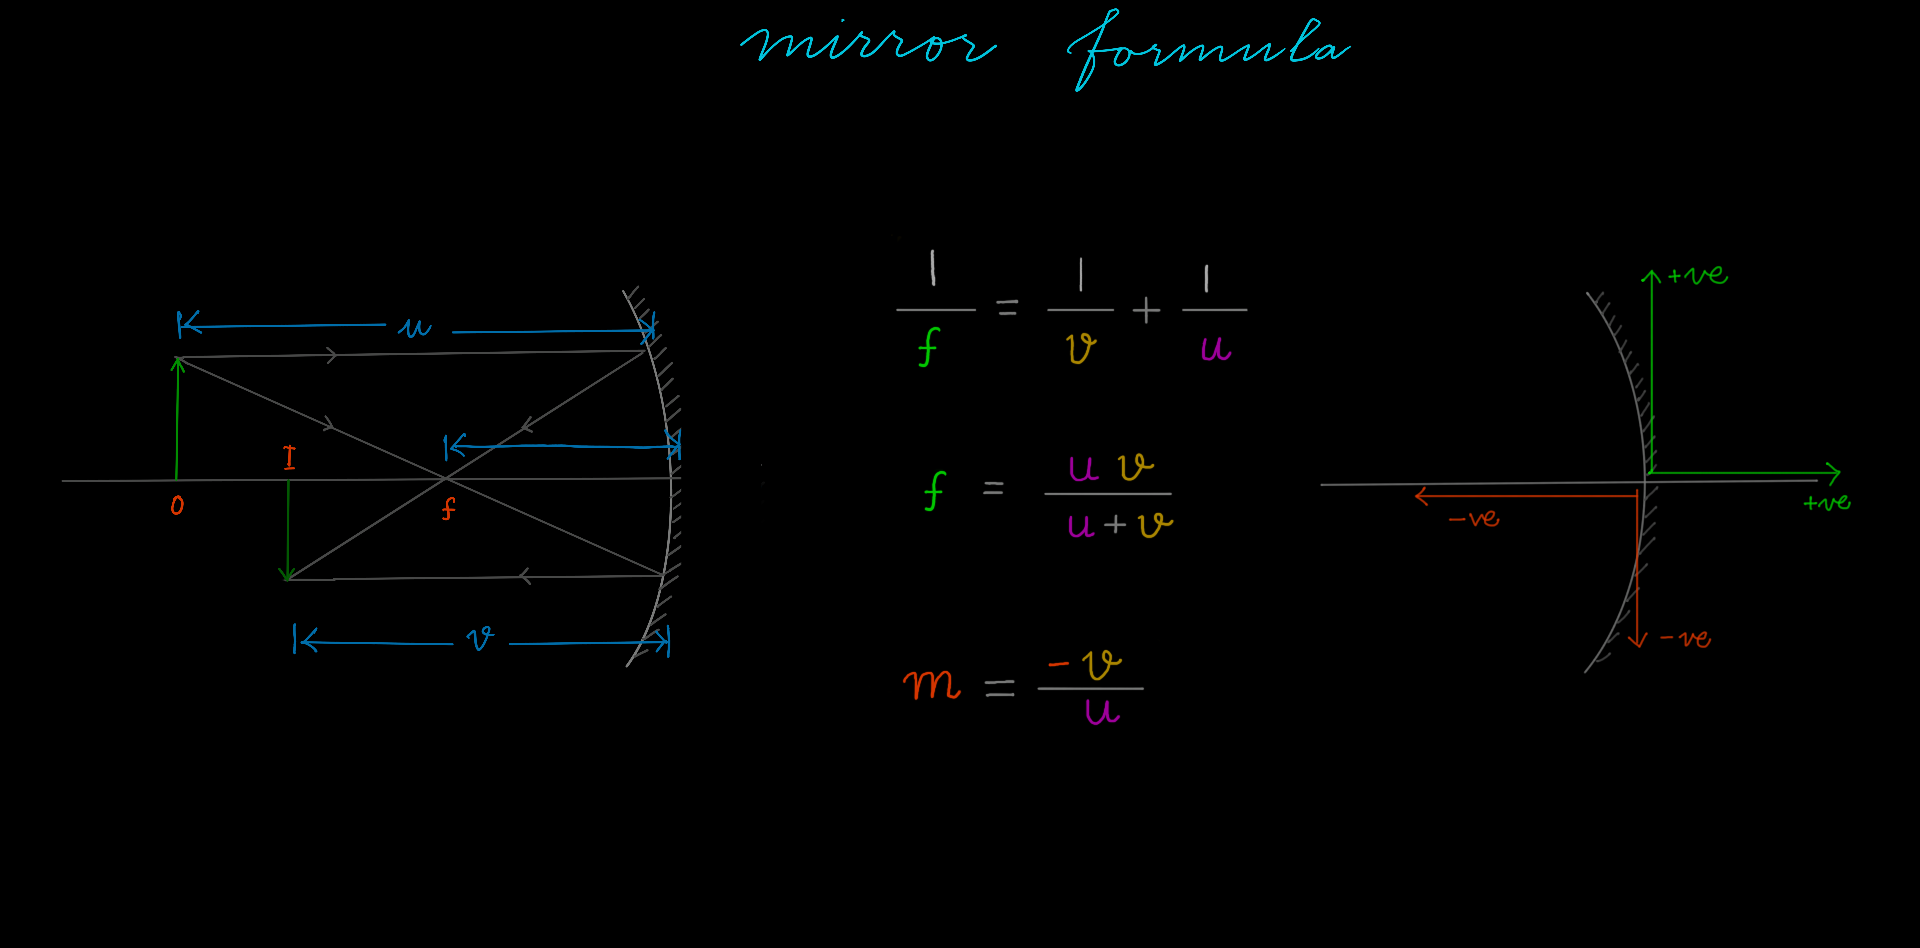 mirror formula
u
I
O
f
v
1/f = 1/v + 1/u
f = u v/u + v
m = - v/u
+ve
+ve
-ve
-ve